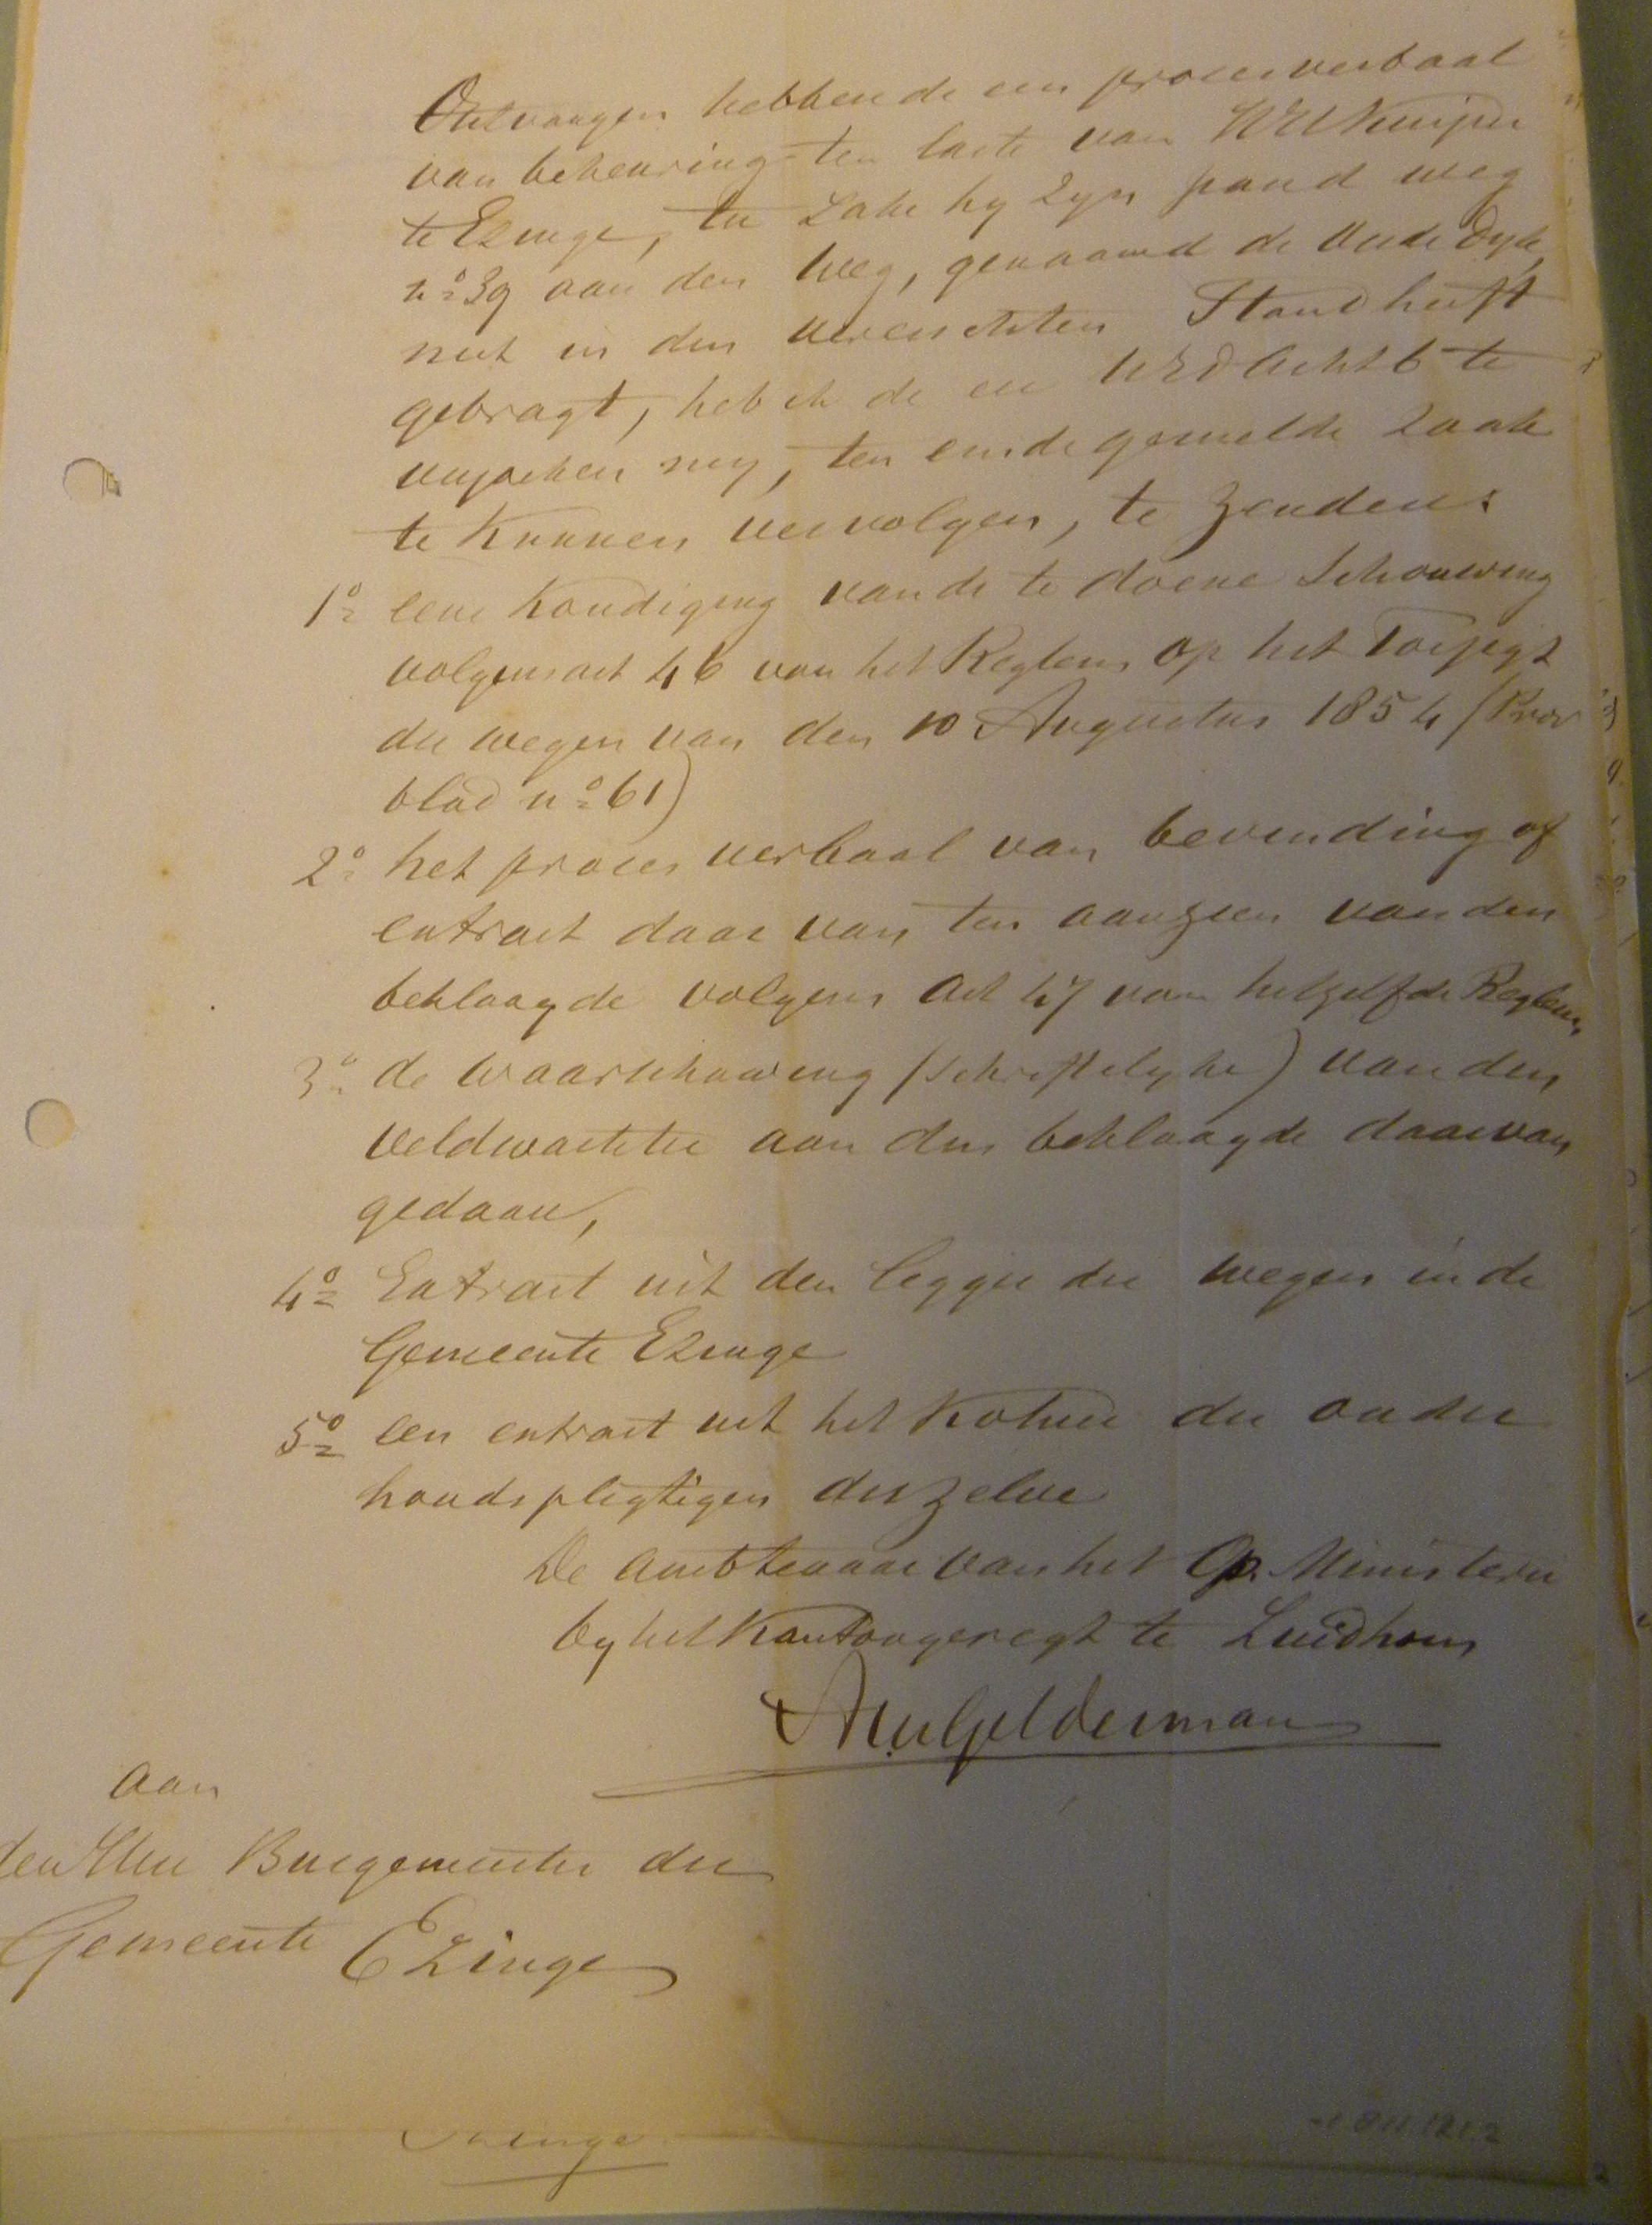 Ontvangen hebbende een procesverbaal
van bekeuring ten laste van Kuijper
te Ezinge, ter zake hy zyn pand weg
n° 39 aan den weg, genaamd de Oude Dyk,
niet in den vereischten Stand heeft
gebragt, heb ik de eer UEdAchtb te
verzoeken my, ten einde gemelde zaak
te kunnen vervolgen, te zenden:
1° eene Kondiging van de te doene Schouwing
volgens art 46 van het Reglem op het Toezigt
der wegen van den 10 Augustus 1854 (Prov
blad n° 61)
2° het proces verbaal van bevinding of
extract daar van ten aanzien van den
beklaagde volgens Art 47 van hetzelfde Reglem,
3° de waarschuwing (schriftelyke) van den
veldwachter aan den beklaagde daarvan
gedaan,
4° Extract uit den legger der wegen in de
Gemeente Ezinge
5° een extract uit het Kohier der onder
houdspligtigen derzelve
De Ambtenaar van het Op. Ministerie
by het Kantongeregt te Zuidhorn
Gelderman
Aan
den Heer Burgemeester der
Gemeente Ezinge